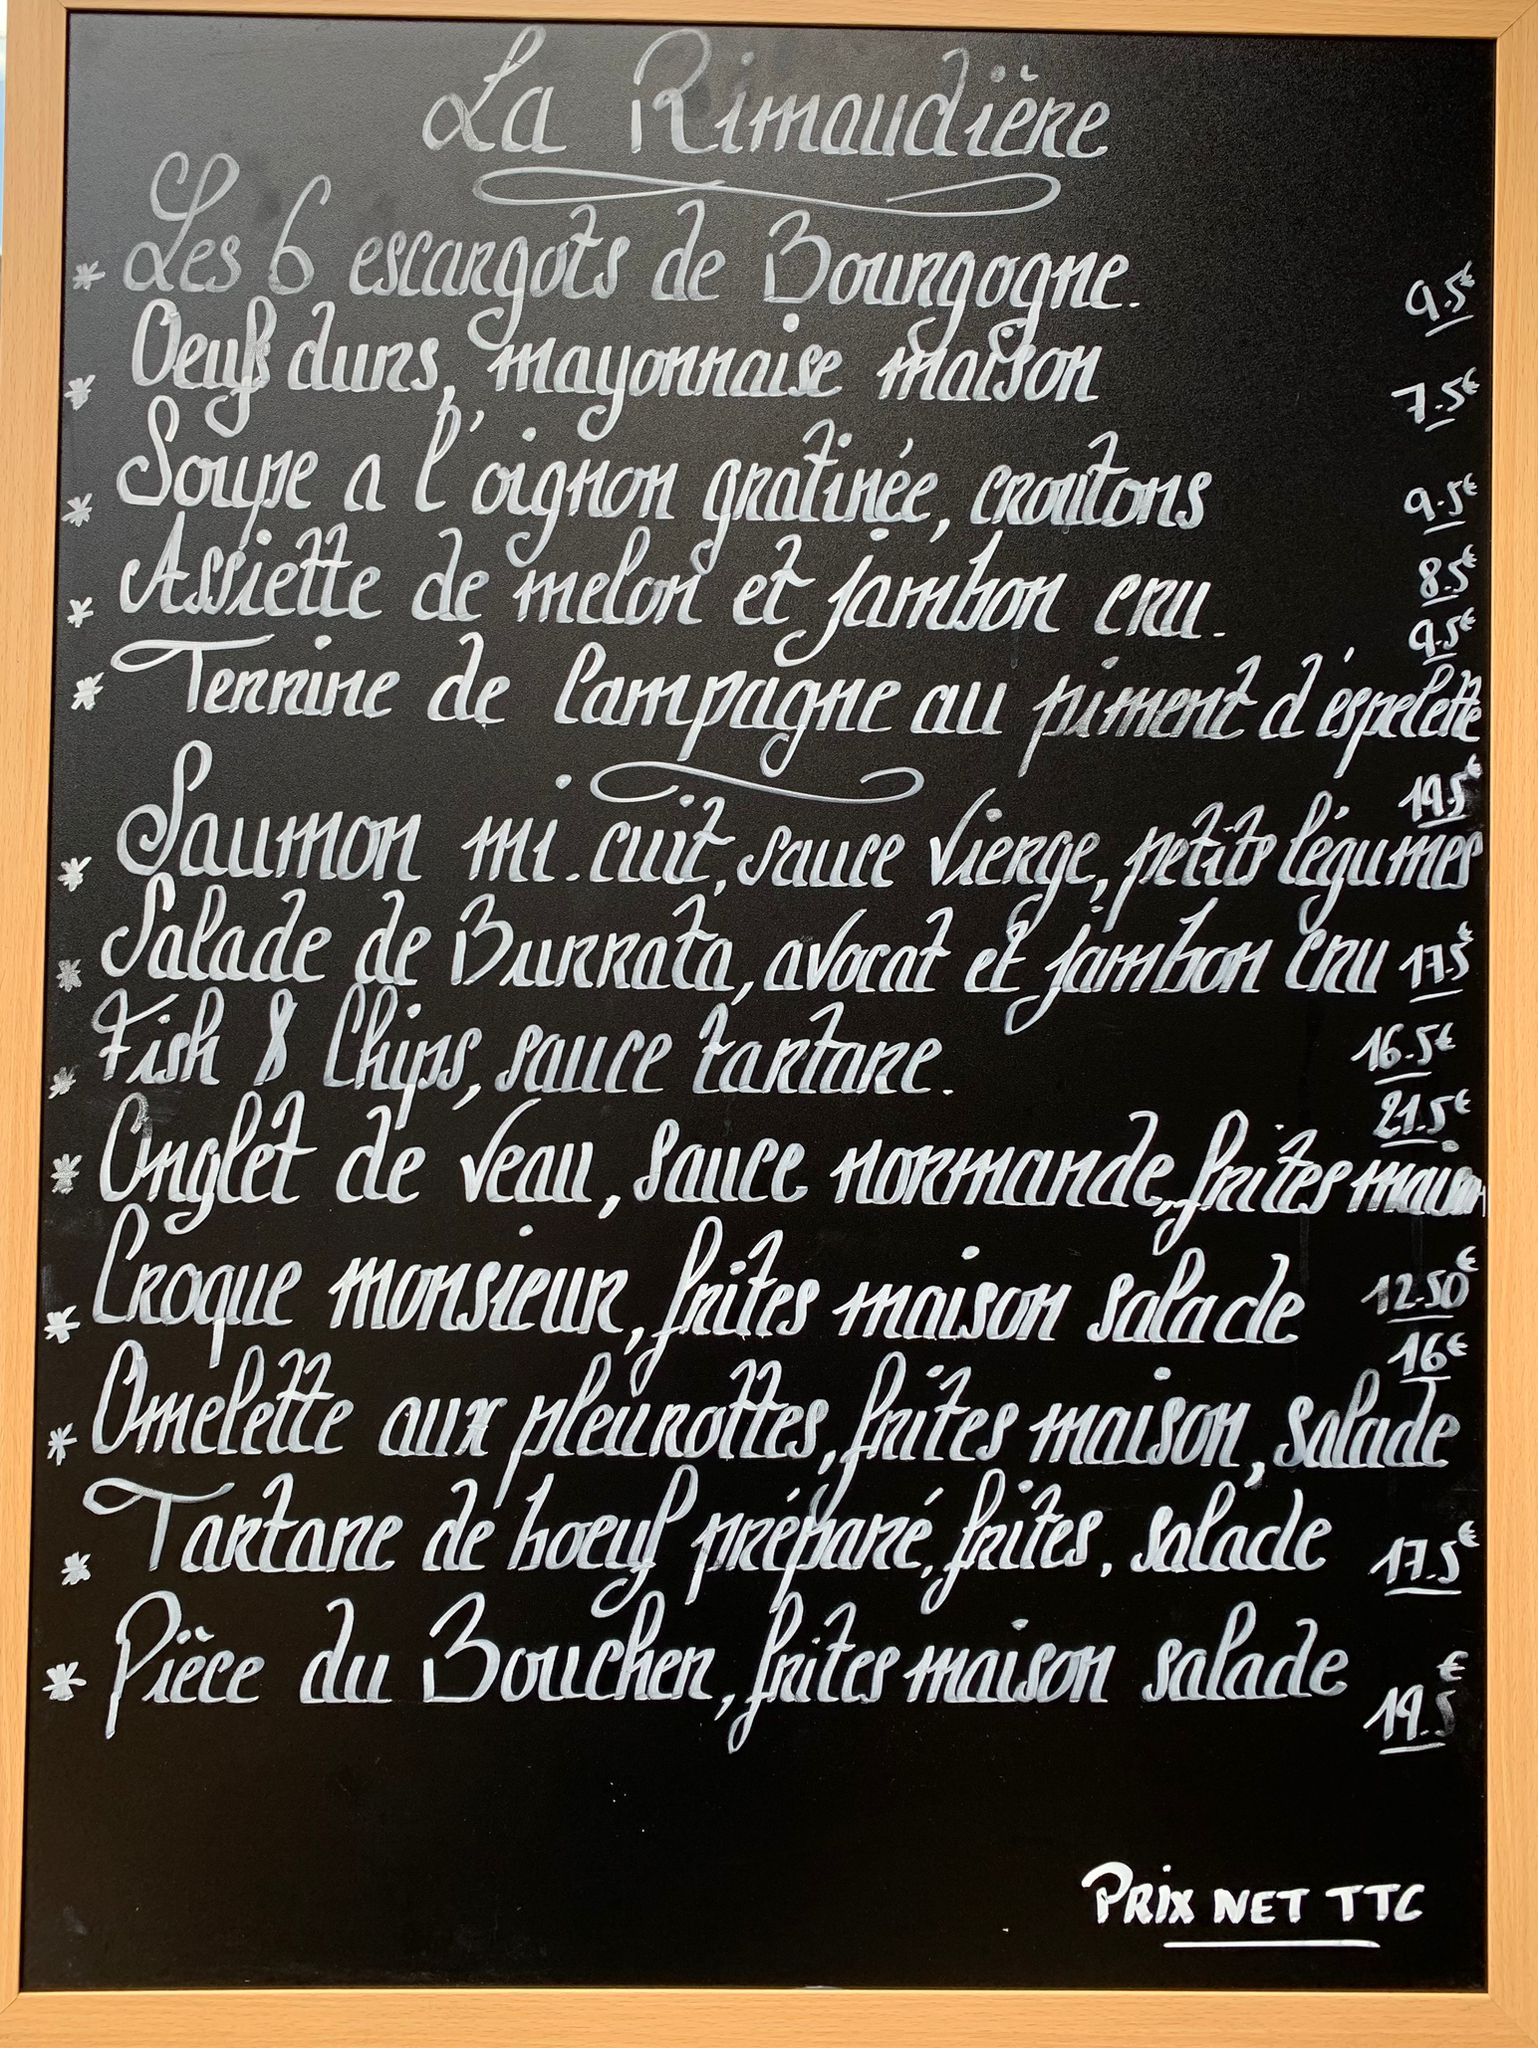 La Rimaudière
* Les 6 escargots de Bourgogne. 9.5€
* Oeufs durs, mayonnaise maison 7.5€
* Soupe a l'oignon gratinée, croutons 9.5€
* Assiette de melon et jambon cru. 8.5€
9.5€
* Terrine de Campagne au piment d'éspelette
19.5€
* Saumon mi.cuit, sauce Vierge, petits légumes
* Salade de Burrata, avocat et jambon cru 17.5€
* Fish & Chips, sauce tartare. 16.5€
21.5€
* Onglet de Veau, sauce normande, frites maison
* Croque monsieur, frites maison salade 12.50€
16€
* Omelette aux pleurottes, frites maison, salade
* Tartare de boeuf préparé, frites, salade 17.5€
* Pièce du Boucher, frites maison salade 19.5€
PRIX NET TTC